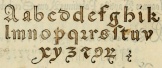 Aabcdefghik
lmnopqrrsſtuv
xyz